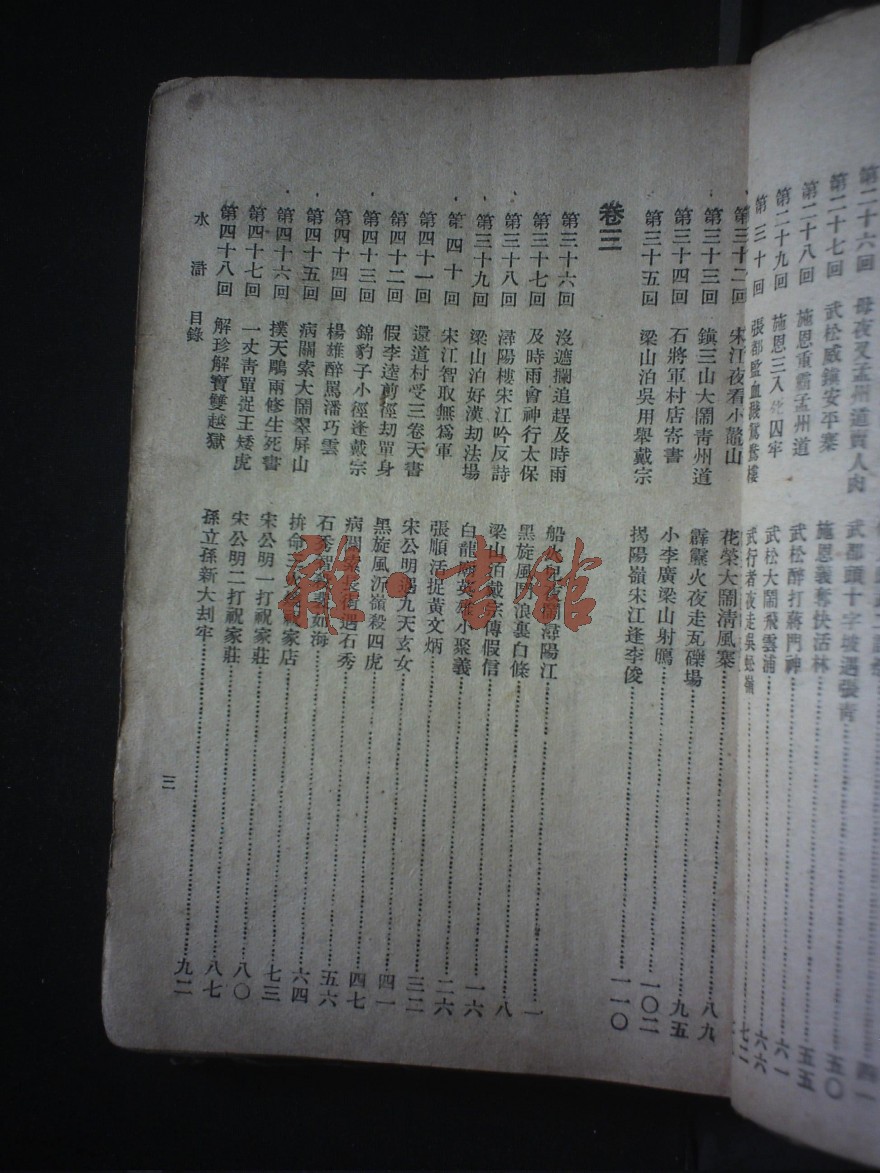 第二十六回　母夜叉孟州道賣人肉　武都頭十字坡遇張靑……四一
第二十七回　武松威鎭安平寨　施恩義奪快活林……五〇
第二十八回　施恩重霸孟州道　武松醉打蔣門神……五五
第二十九回　施恩三入死囚牢　武松大鬧飛雲浦……六一
第三十回　張都監血濺鴛鴦樓　武行者夜走蜈蚣嶺……六六
第三十二回　宋江夜看小鼇山　花榮大鬧淸風寨
第三十三回　鎭三山大鬧靑州道　霹靂火夜走瓦礫場……八九
第三十四回　石將軍村店寄書　小李廣梁山射鴈……九五
第三十五回　梁山泊吳用舉戴宗　揭陽嶺宋江逢李俊……一〇二
一一〇
卷三
第三十六回　沒遮攔追趕及時雨　船火兒夜鬧潯陽江……一
第三十七回　及時雨會神行太保　黑旋風鬥浪裏白條……八
第三十八回　潯陽樓宋江吟反詩　梁山泊戴宗傳假信……一六
第三十九回　梁山泊好漢刧法場　白龍廟英雄小聚義……二六
第四十回　宋江智取無爲軍　張順活捉黃文炳……三二
第四十一回　還道村受三卷天書　宋公明遇九天玄女……四一
第四十二回　假李逵剪徑刧單身　黑旋風沂嶺殺四虎……四七
第四十三回　錦豹子小徑逢戴宗　病關索長街遇石秀……五六
第四十四回　楊雄醉駡潘巧雲　石秀智殺裴如海……六四
第四十五回　病關索大鬧翠屛山　拚命三火燒祝家店……七三
第四十六回　撲天鵰兩修生死書　宋公明一打祝家莊……八〇
第四十七回　一丈靑單捉王矮虎　宋公明二打祝家莊……八七
第四十八回　解珍解寶雙越獄　孫立孫新大刦牢……九二
水滸　目錄　三
雜·書館